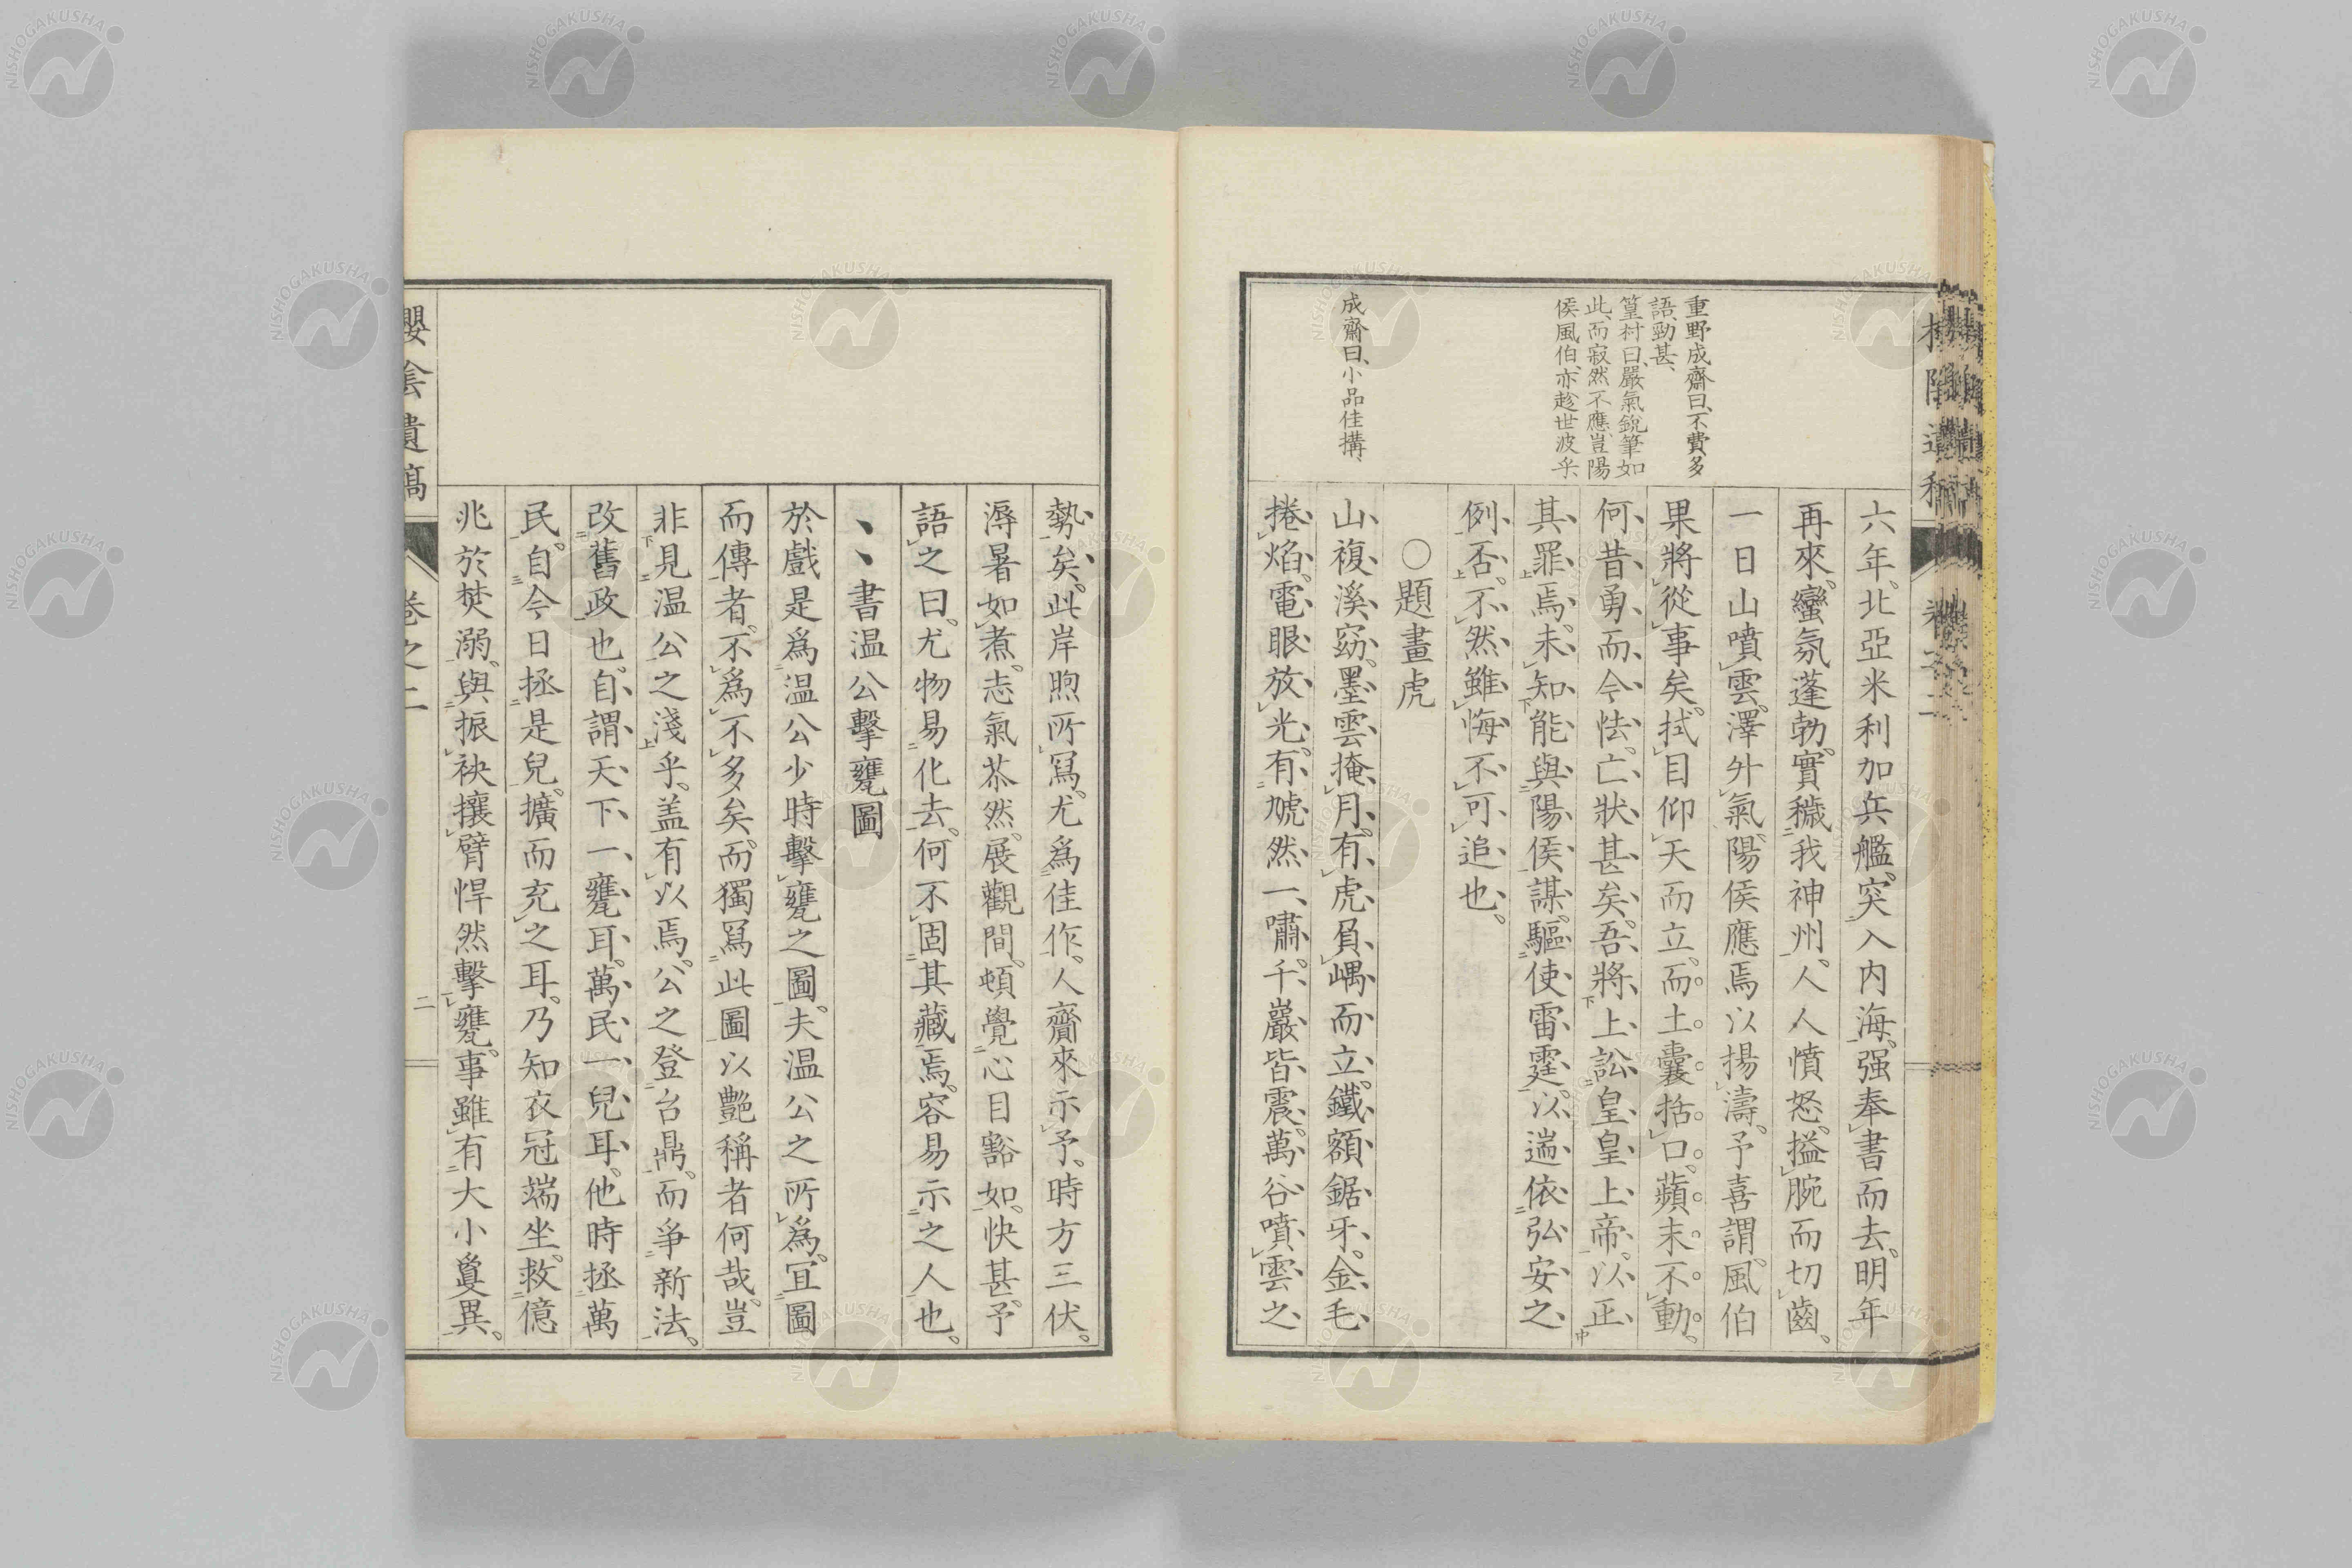 重野成齋曰、不費多
語、勁甚、
篁村曰、嚴氣銳筆如
此、而寂然不應、豈陽
侯風伯、亦趁世波乎、
成齋曰、小品佳搆、
六年。北亞米利加兵艦。突入内海。强奉書而去。明年
再來。蠻氛蓬勃。實穢我神州。人人憤怒。搤腕而切齒。
一日山噴雲。澤升氣。陽侯應焉以揚濤。予喜謂。風伯
果將從事矣。拭目仰天而立。而土囊括口。蘋末不動。
何昔勇而今怯。亡狀甚矣。吾將上訟皇皇上帝。以正
其罪焉。未知能與陽侯謀。驅使雷霆。以遄依弘安之
例否。不然雖悔不可追也。
○題畫虎
山複溪窈。墨雲掩月。有虎負嵎而立。鐵額鋸牙。金毛
捲焰。電眼放光。有虓然一嘯。千巖皆震。萬谷噴雲之
勢矣。此岸煦所寫。尤爲佳作。人齎來示予。時方三伏。
溽暑如煮。志氣苶然。展觀間。頓覺心目豁如。快甚。予
語之曰。尤物易化去。何不固其藏焉。容易示之人也。
、、書温公擊甕圖
於戲是爲温公少時擊甕之圖。夫温公之所爲。宜圖
而傳者。不爲不多矣。而獨寫此圖以艷稱者何哉。豈
非見温公之淺乎。盖有以焉。公之登台鼎。而爭新法。
改舊政也。自謂天下一甕耳。萬民一兒耳。他時拯萬
民。自今日拯是兒。擴而充之耳。乃知衣冠端坐。救億
兆於焚溺。與振袂攘臂悍然擊甕。事雖有大小夐異。
櫻陰遺稿
卷之二
二